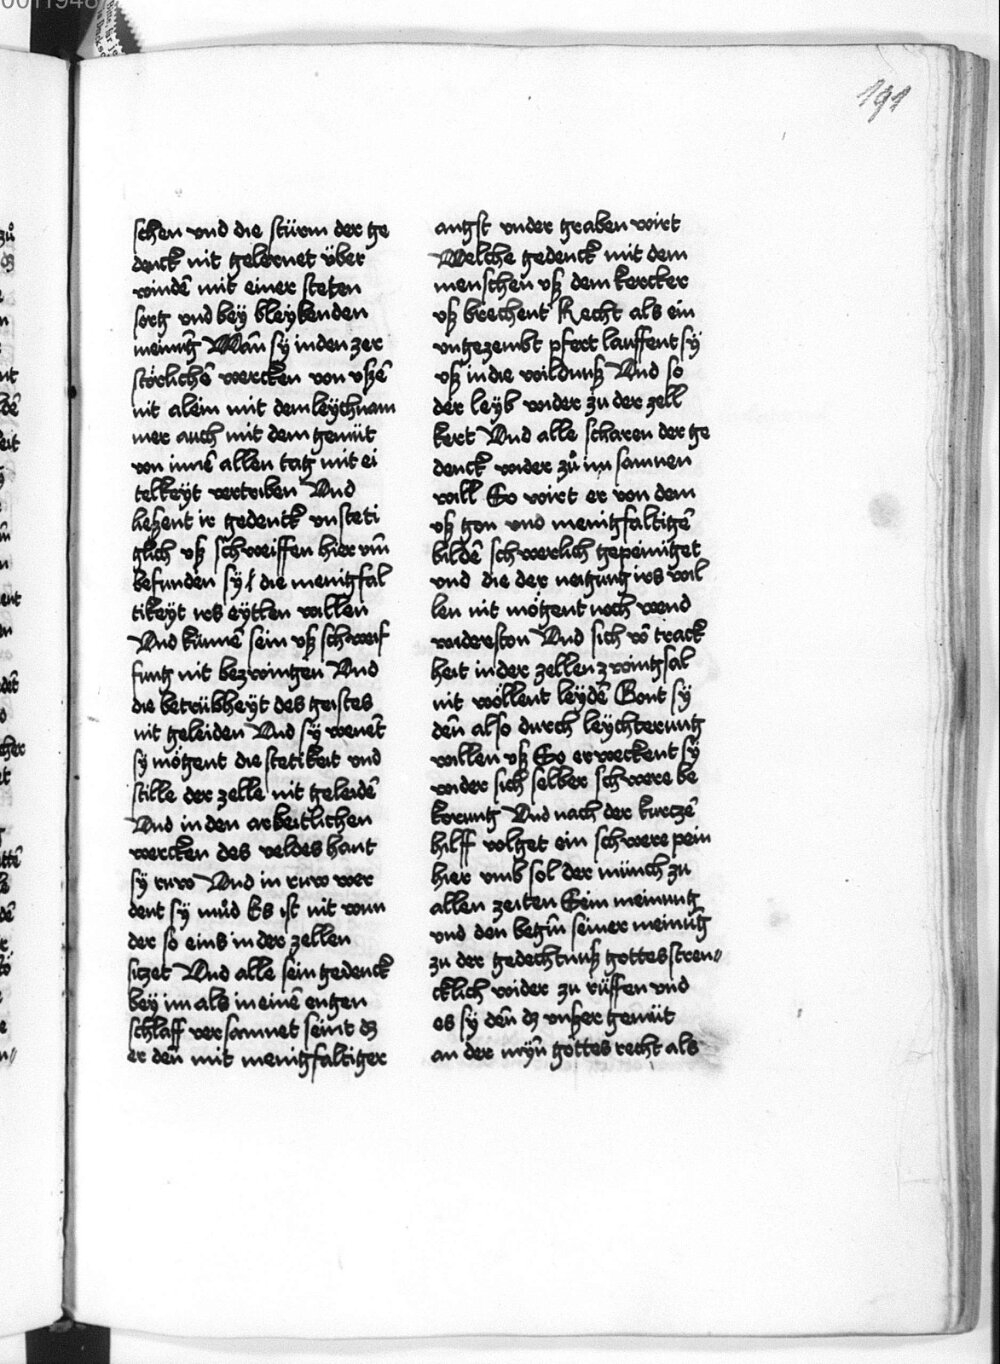 191
schen vnd die stürm der ge
denck nit gelernet über
windē mit einer steten
sorg vnd bey bleybenden
meinūg Wañ sy in den zer
störlichē wercken von vßē
nit alein mit dem leychnam
mer auch mit dem gemüt
von innē allen tag mit ei
telkeyt vertriben Vnd
ließent ir gedenck vnsteti
glich vß schweiffen hier vm̄
befunden sy / die menigfal
tikeyt irs eytlen willen
Vnd künnē sein vß schweif
fung nit bezwingen Vnd
die betrübheyt des geistes
nit geleiden Vnd sy wenēt
sy mögent die stetikeit vnd
stille der zelle nit geleidē
Vnd in den arbeitlichen
wercken des veldes hant
sy ruw Vnd in ruw wer
dent sy müd Es ist nit wun
der so eins in der zellen
sitzet Vnd alle sein gedenck
bey im als in einē engen
schlaff versamnet seint dz
er deñ mit menigfaltiger
angst vnder graben wirt
Welche gedenck mit dem
menschen vß dem kercker
vß brechent Recht als ein
vngezembt pfert lauffent sy
vß in die wildnuß Vnd so
der leyb wider zu der zell
kert Vnd alle scharen der ge
denck wider zů im samnen
will So wirt er von dem
vß gon vnd menigfaltigē
bildē schwerlich gepeiniget
vnd die der neigung irs wil
len nit mögent noch wend
widerston Vnd sich vō track
heit in der zellen zwingsal
nit wöllent leydē Gont sy
dēn also durch leychterung
willen vß So erweckent sy
wider sich selber schwere be
korung Vnd nach der kurczē
hilff volget ein schwere pein
hier vmb sol der münch zu
allen zeiten Sein meinung
vnd den begin seiner meinūg
zu der gedechtnuß gottes stren//
cklich wider zu rüffen vnd
es sy dēn dz vnßer gemüt
an der mȳn gottes recht als